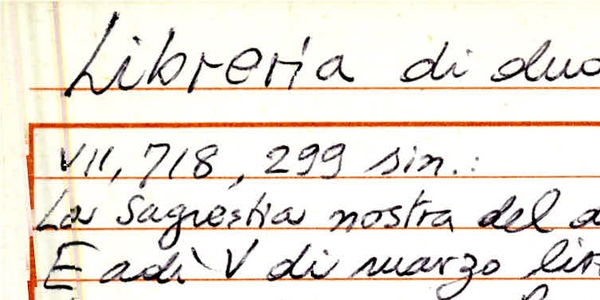 Libreria di duo
VII, 718, 299 sin.:
La Sagrestia nostra del d
E adì V di marzo lir